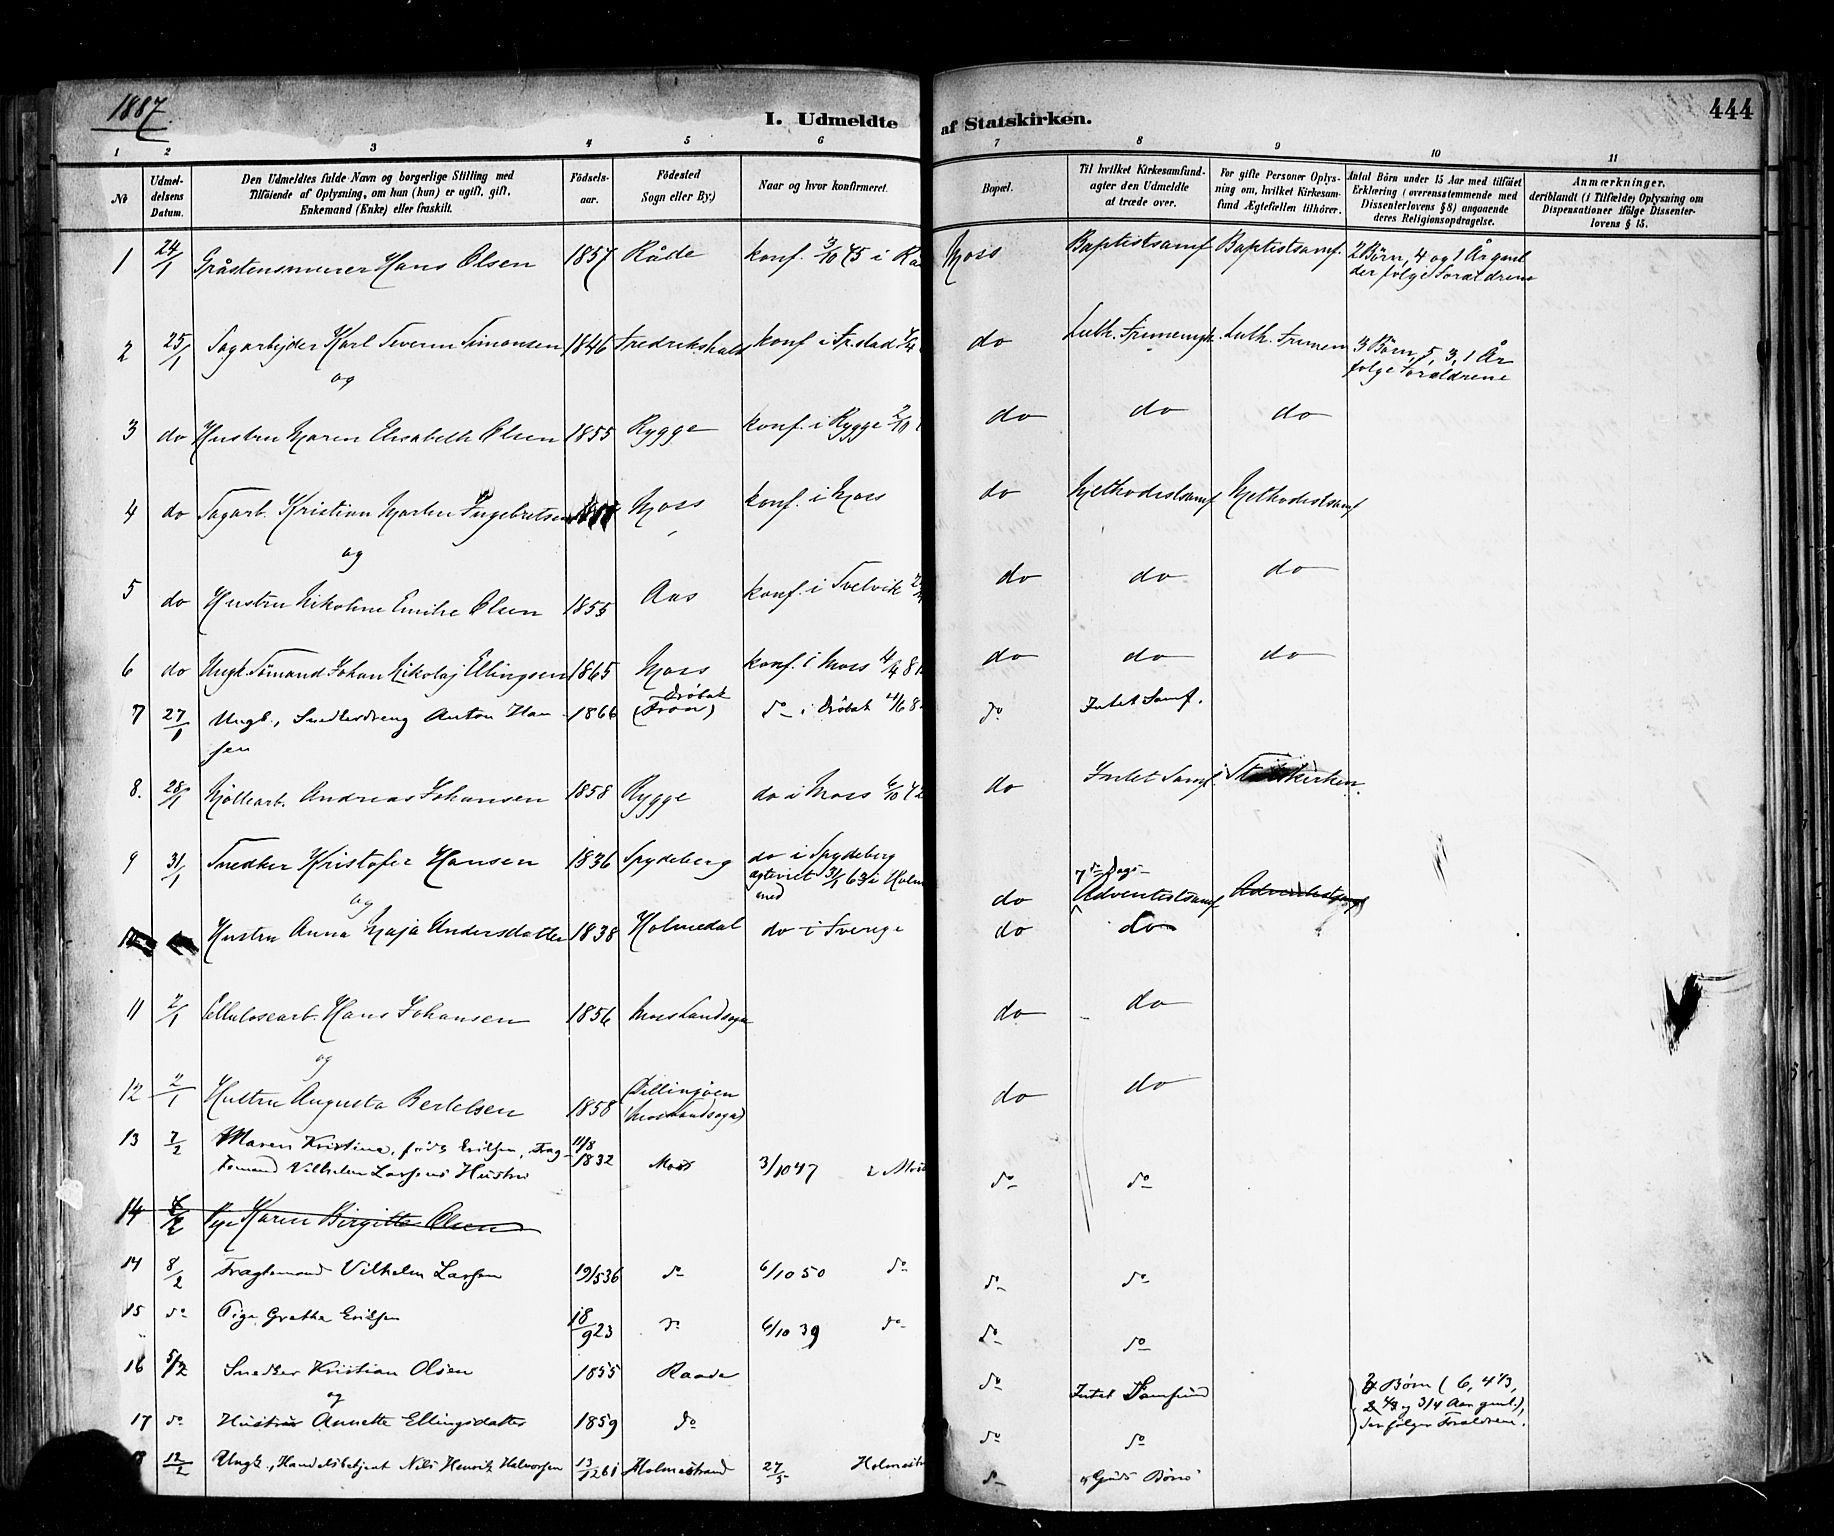 1887.
I. Udmeldte af Statskirken.
444
1 2 3 4 5 6 7 8 9 10 11
No
Udmeldelsens Datum.
Den Udmeldtes fulde Navn og borgerlige Stilling med
Tilføiende af Oplysning, om han (hun) er ugift, gift,
Enkemand (Enke) eller fraskilt.
Fødselsaar.
Fødested
Sogn eller By.)
Naar og hvor konfirmeret.
Bopæl.
Til hvilket Kirkesamfund-
agter den Udmeldte
at træde over.
For gifte Personer Oplys-
ning om, hvilket Kirkesam-
fund Ægtefællen tilhører.
Antal Børn under 15 Aar med tilføiet
Erklæring (overensstemmende med
Dissenterlovens § 8) angaaende
deres Religionsopdragelse.
Anmærkninger,
deriblandt (i Tilfælde) Oplysning om
Dispensationer ifølge Dissenter-
lovens § 15.
1 24/1 Gråstensmurer Hans Olsen 1857 Råde konf. 3/10 75 i Moss Baptistsamf. Baptistsamf. 2 Børn, 4 og 1 År gml.
der følge Forældrene
2 25/1 Sagarbejder Karl Severin Simonsen 1846 Fredrikshald konf i Fr.stad do Luth. Frimenigh. Luth. Frimen 3 Børn, 5, 3, 1 År
følge Forældrene
og
3 do Hustru Maren Elisabeth Olsen 1855 Rygge konf. i Rygge 2/10 do do do
4 do Sagarb. Kristian Martin Ingebretsen Moss konf. i Moss do Methodistsamf. Methodistsamf
og
5 do Hustru Nikoline Emilie Olsen 1855 Aas konf. i Svelvik do do do
6 do Ungk. Sømand Johan Nikolaj Ellingsen 1865 Moss konf. i Moss do do do
7 27/1 Ungk., Snedkerdreng Anton Han- 1866 Drøbak
(Fron) do i Drøbak do Intet Samf.
sen
8. 28/1 Møllearb. Andreas Johansen 1858 Rygge do i Moss 6/10 72 do Intet Samf. Statskirken.
9 31/1 Snedker Kristofer Hansen 1836 Spydeberg do i Spydeberg
ægteviet 31/1 63 i Holm do 7de Dags-
Adventistsamf. Adventistsamf
og
10 Hustru Anna Maja Andersdatter 1838 Holmedal do i Sverige do do
11 2/1 Cellulosearb. Hans Johansen 1856 Moss Landsogn do do
og
12 2/1 Hustru Augusta Bertelsen 1858 Dillingøen
(Moss Landsogn) do do
13 7/2 Maren Kristine, født Eriksen, Frag-
temand Vilhelm Larsens Hustru 11/8
1832 Moss 3/10 47 i Moss do do
14 Pige Karen Birgitte Olsen
14 8/2 Fragtemand Vilhelm Larsen 19/5 36 do 6/10 50 do do do
15 do Pige Grethe Eriksen 18/9 23 do 6/10 39 do do do
16 5/2 Snedker Kristian Olsen 1855 Raade do Intet Samfund 3 Børn (6, 4 1/3,
og 3/4 Aar gml.),
der følger Forældrene.
og
17 do Hustru Annette Ellingsdatter 1859 do do do
18 12/2 Ungk., Handelsbetjent Nils Henrik Halvorsen 13/12 61 Holmestrand 27/5 Holmestr do Guds Børn